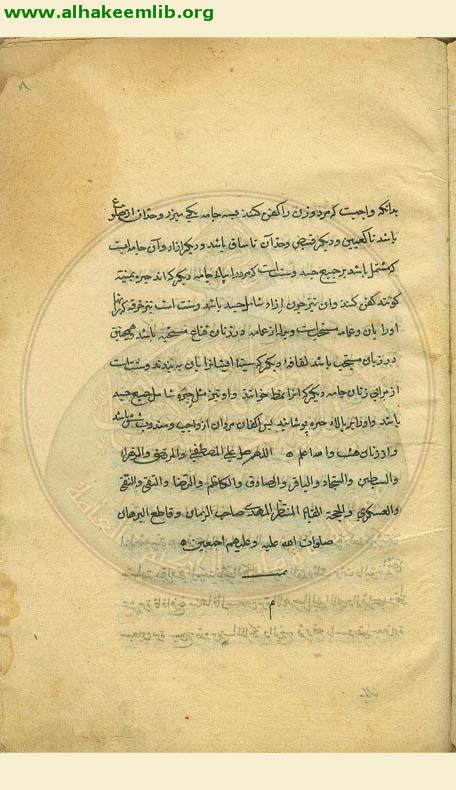 www.alhakeemlib.org
بدانکه واجبست که مرد و زن را کفن کنند بسه جامه یکی میزر و حد آن از
باشد تا کعبین و دیگر قمیص و حد آن تا ساق باشد و دیگر ازار و آن جامه ایست
که مشتمل باشد بر جمیع جسد و سنت است که مرد را بالاء جامه دیگر که آنرا حبره یمنیه
کویند کفن کنند و آن نیز چون ازار شامل جسد باشد و سنت است نیز خرقه که
او را بان و عمامه مستحب است و بدل از عمامه در زنان قناع مستحب باشد و همچنین
در زنان مستحب باشد لفافه دیگر که پستان ایشانرا بان به بندند و سنت است
از برای زنان جامه دیگر که آنرا نمط خوانند و او نیز مثل حبره شامل جمیع جسد
باشد و او را نیز بالاء حبره پوشانند پس اکفان مردان از واجب و مندوب شش باشد
و از زنان هشت والله اعلم ه اللهم صل علی المصطفی و المرتضی و الزهراء
والسبطین والسجاد والباقر والصادق والکاظم والرضا والتقی والنقی
والعسکری والحجة القائم المنتظر المهدی صاحب الزمان وقاطع البرهان
صلوات الله علیه وعلیهم اجمعین ه
م